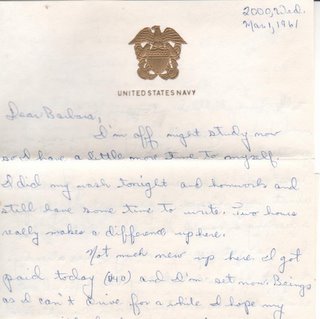 2000, Wed.
Mar 1, 1961
UNITED STATES NAVY
Dear Barbara,
I'm off night study now
so I have a little more time to myself.
I did my wash tonight and homework and
still have some time to write. Two hours
really makes a difference up here.
Not much new up here. I got
paid today ($40) and I'm set now. Being
as I can't drive for a while I hope my